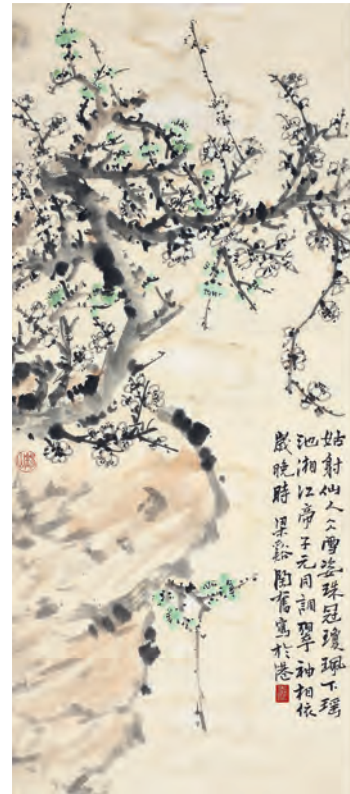 姑射仙人仌雪姿珠冠瓊珮下瑤
池湘江帝子元同調翠袖相依
歲晚時 梁谿寫於港